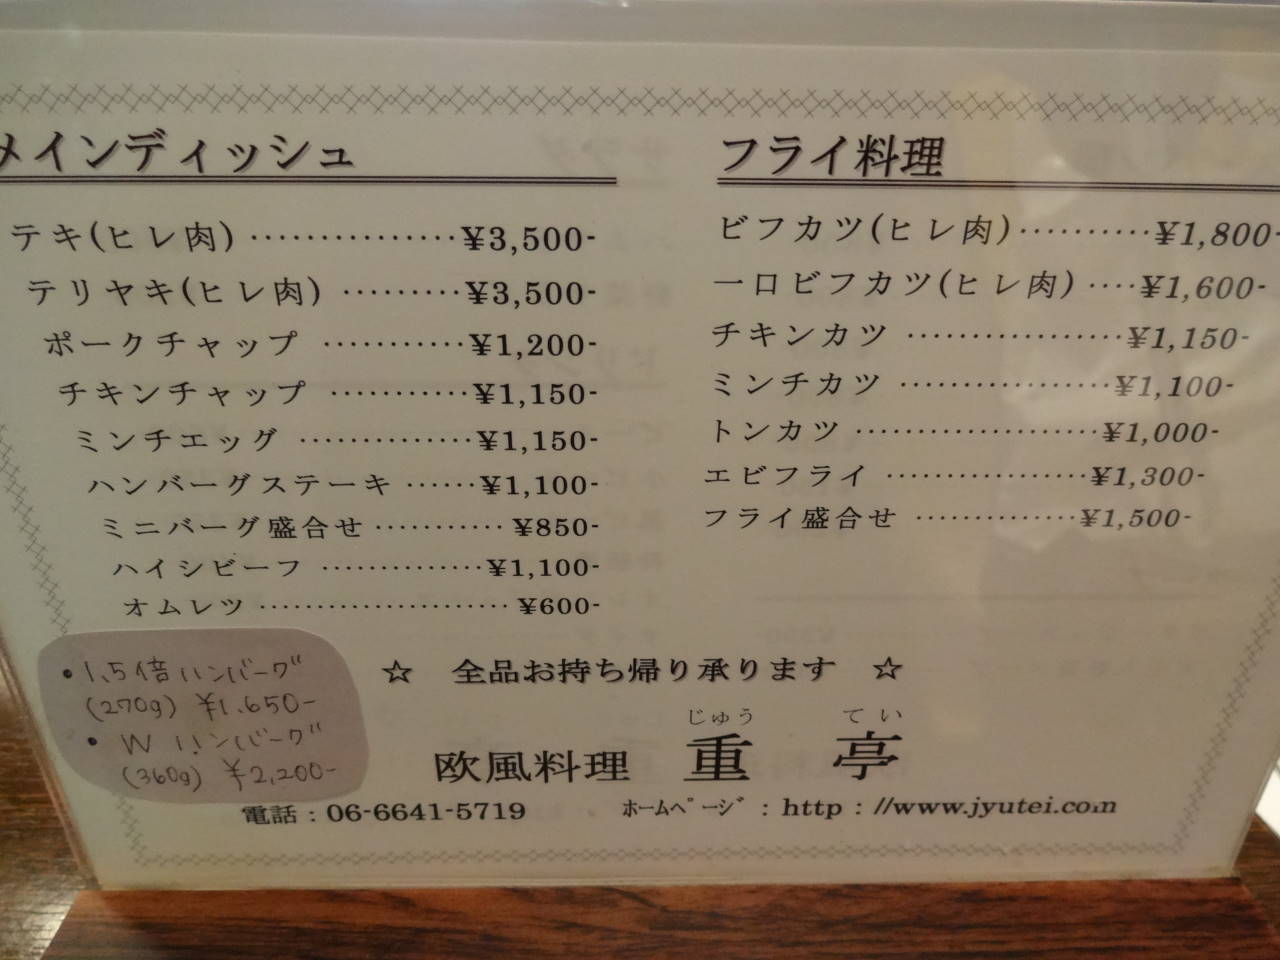 メインディッシュ
テキ(ヒレ肉) ･･････････････¥3,500-
テリヤキ(ヒレ肉) ･････････¥3,500-
ポークチャップ ･･････････¥1,200-
チキンチャップ ･･････････¥1,150-
ミンチエッグ ･････････････¥1,150-
ハンバーグステーキ ･･････¥1,100-
ミニバーグ盛合せ ･･･････････ ¥850-
ハイシビーフ ･･････････････¥1,100-
オムレツ ･････････････････････ ¥600-
フライ料理
ビフカツ(ヒレ肉)･･････････¥1,800-
一口ビフカツ(ヒレ肉) ････¥1,600-
チキンカツ ････････････････¥1,150-
ミンチカツ ････････････････¥1,100-
トンカツ ･･･････････････････¥1,000-
エビフライ ････････････････¥1,300-
フライ盛合せ ･････････････¥1,500-
・1.5倍ハンバーグ
(270g) ¥1.650-
・W ハンバーグ
(360g) ¥2,200-
☆ 全品お持ち帰り承ります ☆
じゅう てい
欧風料理 重 亭
電話：06-6641-5719 ﾎｰﾑﾍﾟｰｼﾞ：http：//www.jyutei.com